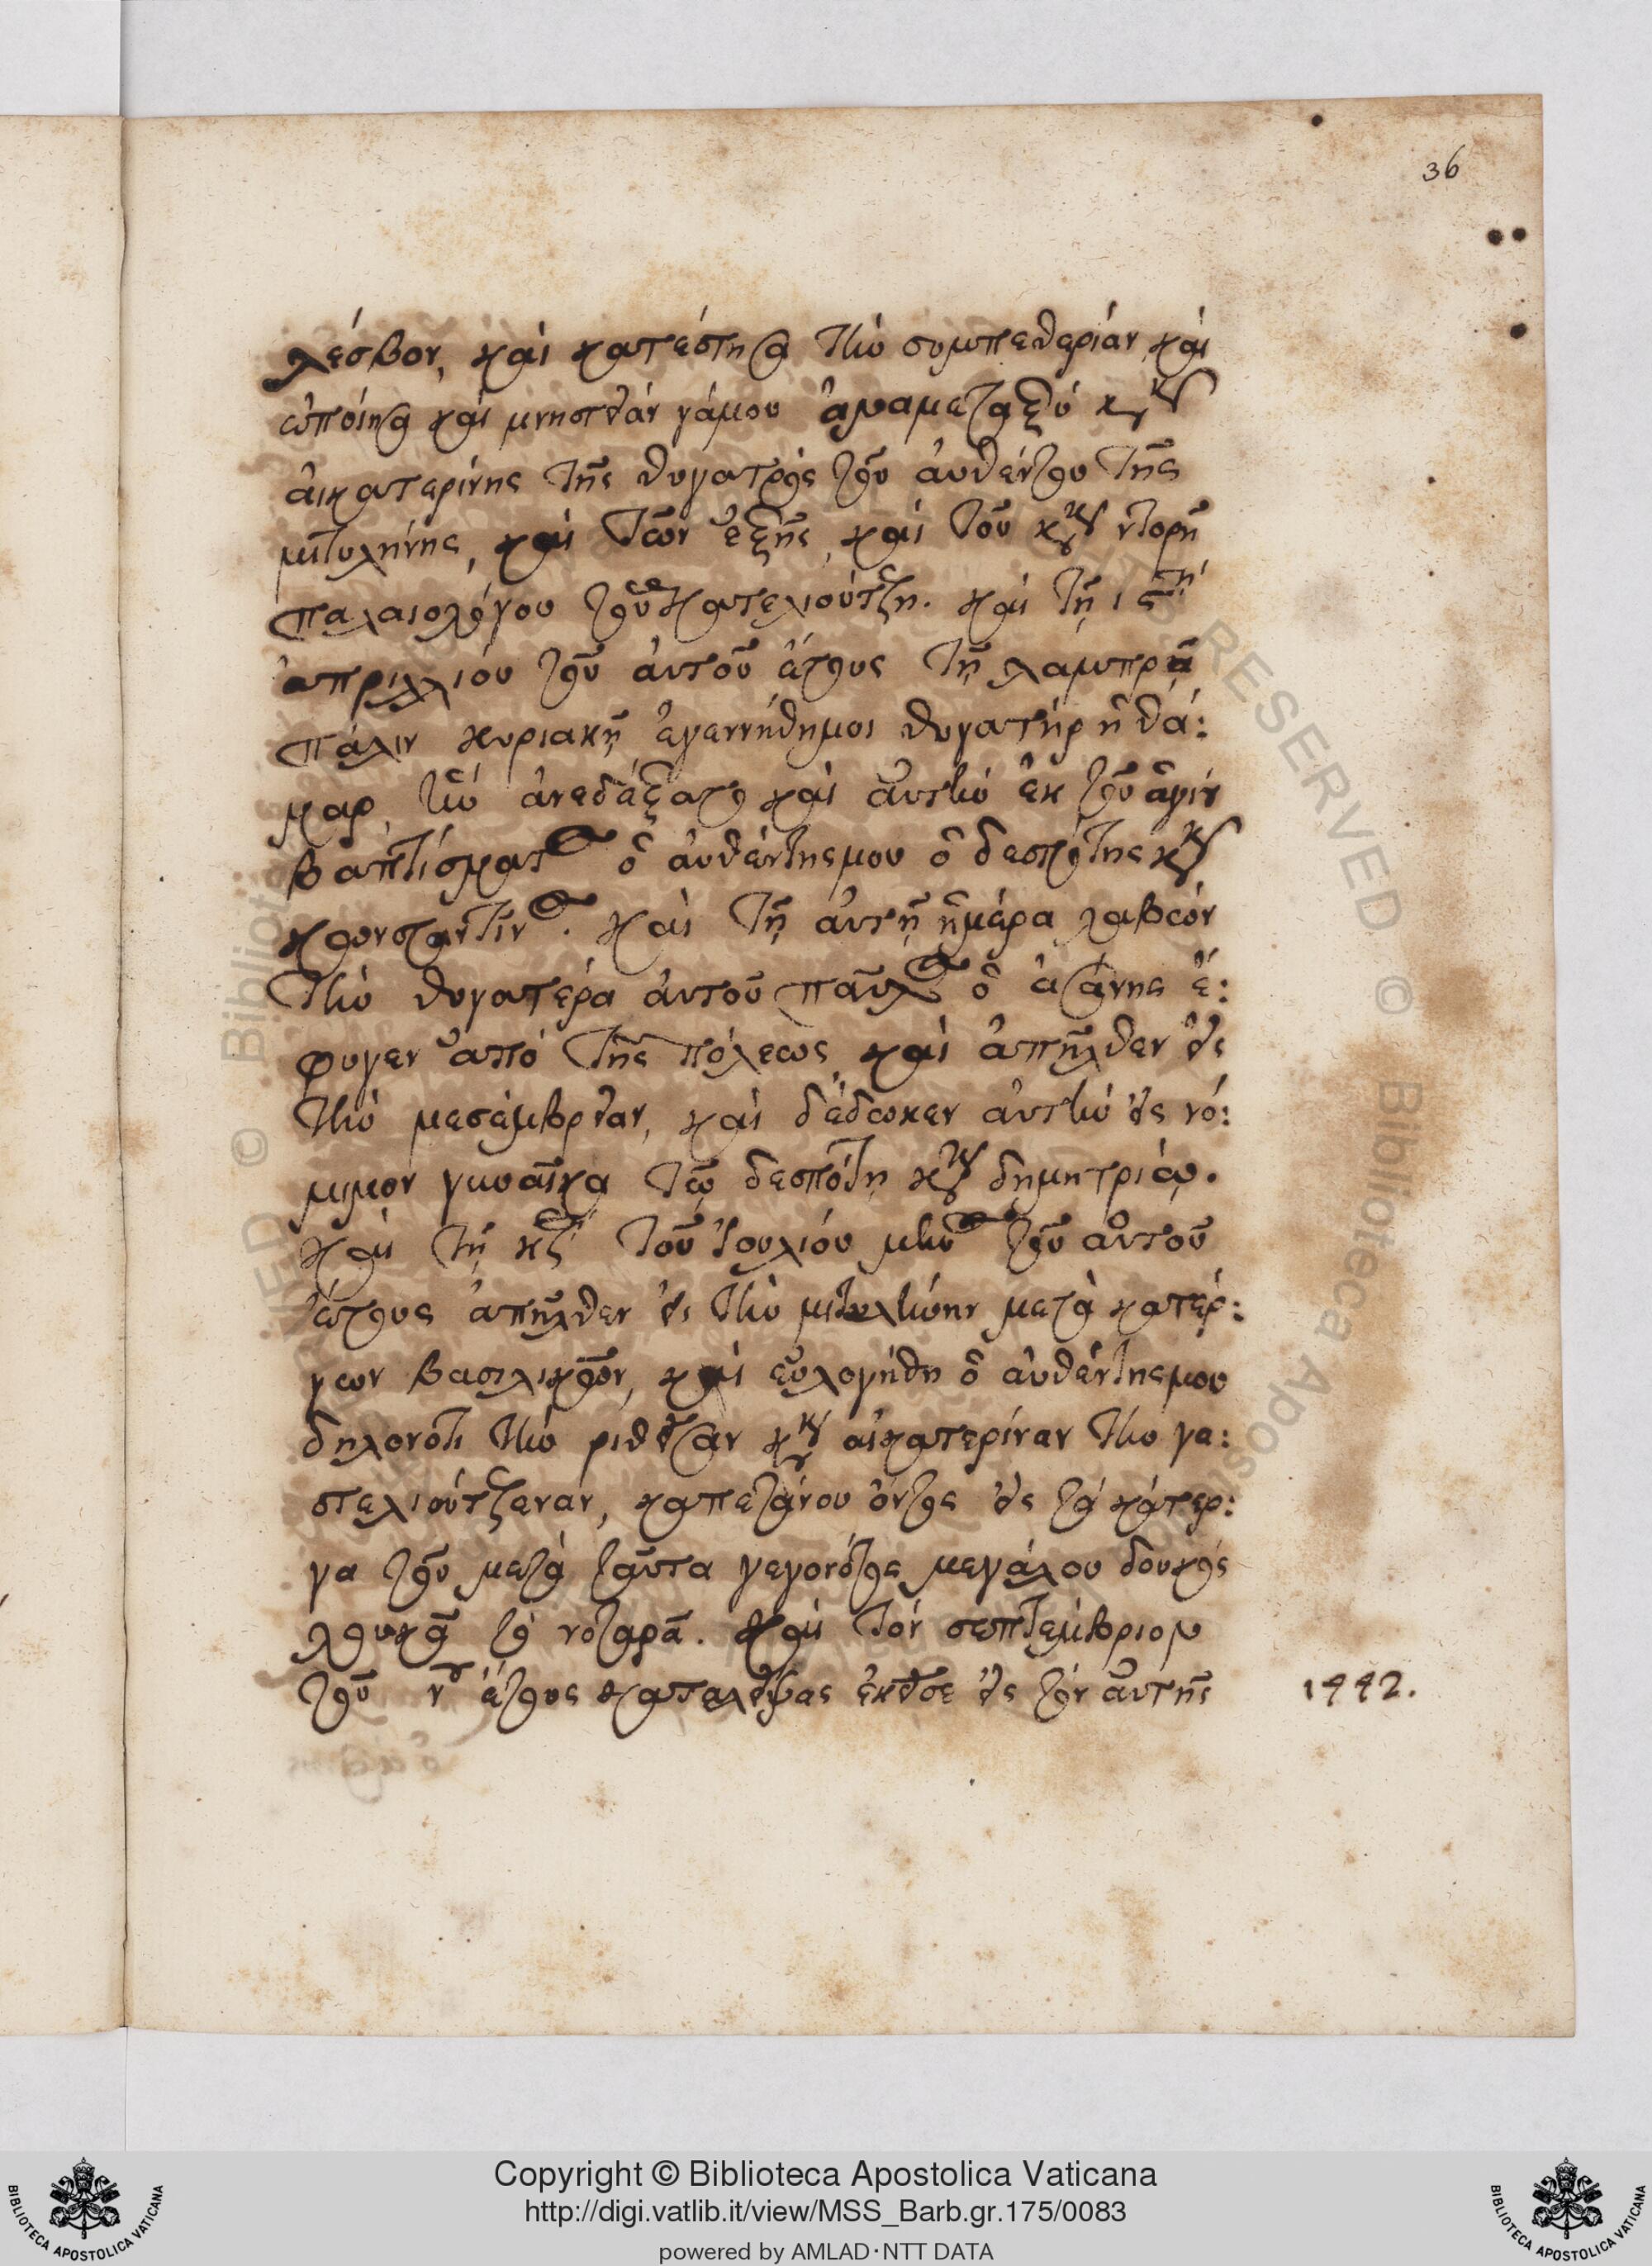 36
λέσβον, καὶ κατέστησα τὴν συμπεθερίαν καὶ
ἐποίησα καὶ μνηστείαν γάμου ἀναμεταξὺ κυροῦ
ἀικατερίνης τῆς θυγατρὸς τοῦ ἀυθέντου τῆς
μιτυλήνης, καὶ τῶν ἐξῆς, καὶ τοῦ κυροῦ ντορῆ
παλαιολόγου τοῦ κατελιούτζη. καὶ τῇ ιςῃ
ἀπριλλίου τοῦ ἀυτοῦ ἔτους τῇ λαμπρᾷ
πάλιν κυριακῇ ἐγεννήθημοι θυγατὴρ ἡ θά:
μαρ, ἣν ἀνεδέξατο καὶ ἀυτὴν ἐκ τοῦ ἁγίου
βαπτίσματος ὁ ἀυθέντης μου ὁ δεσπότης κυρ
κωνσταντῖνος. καὶ τῇ ἀυτῇ ἡμέρα λαβὼν
τὴν θυγατέρα ἀυτοῦ παῦλος ὁ ἀσάνης ἔ:
φυγεν ἀπὸ τῆς πόλεως, καὶ ἀπῆλθεν εἰς
τὴν μεσέμβρειαν, καὶ δέδωκεν ἀυτὴν εἰς νό:
μιμον γυναῖκα τῷ δεσπότῃ κυρῷ δημητρίῳ.
καὶ τῇ κζ τοῦ ἰουλίου μηνὸς τοῦ αὐτοῦ
ἔτους ἀπῆλθεν εἰς τὴν μιτυλήνην μετὰ κατέρ:
γων βασιλικῶν, καὶ εὐλογήθη ὁ ἀυθέντης μου
δηλονότι τὴν ῥιθεῖσαν κυροῦ αἰκατερίναν τὴν γα:
στελιούτζεναν, καπετάνου ὄντος εἰς τὰ κάτερ:
γα τοῦ μετὰ ταῦτα γεγονότος μεγάλου δουκὸς
λουκᾶ τοῦ νοταρᾶ. καὶ τὸν σεπτέμβριον
τοῦ νου ἔτους καταλείψας ἐκεῖσε εἰς τὸν ἀυτῆς
1442.
Copyright © Biblioteca Apostolica Vaticana
http://digi.vatlib.it/view/MSS_Barb.gr.175/0083
powered by AMLAD·NTT DATA